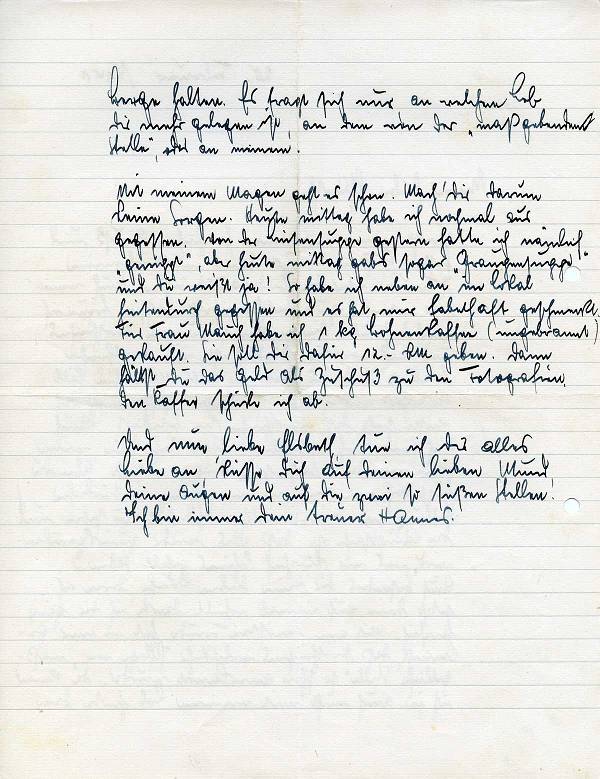 Berge halten. Es fragt sich nur an welchem Lob
Dir mehr gelegen ist, an dem von der „maßgebenden
Stelle", oder an meinem.
Mit meinem Magen geht es schon. Mach' Dir darum
keine Sorgen. Heute mittag habe ich nochmal aus
gegessen. Von der gestern hatte ich nämlich
"genippt", aber heute mittag gab's sogar „Graupensuppe"
und Du weißt ja! So habe ich neben an im Lokal
gegessen und es hat mir fabelhaft geschmeckt.
Für Frau Mauch habe ich 1 kg Bohnenkaffee (ungebrannt)
gekauft. Sie soll Dir dafür 12.- RM geben. Dann
hättst Du das Geld als Zuschuß zu den Fotografien.
Den Kaffee schicke ich ab.
Und nun liebe Elsbeth tue ich Dir alles
Liebe an küsse Dich auf Deinen lieben Mund
Deine Augen und auf die zwei so süßen Stellen!
Ich bin immer Dein treuer Hannes.